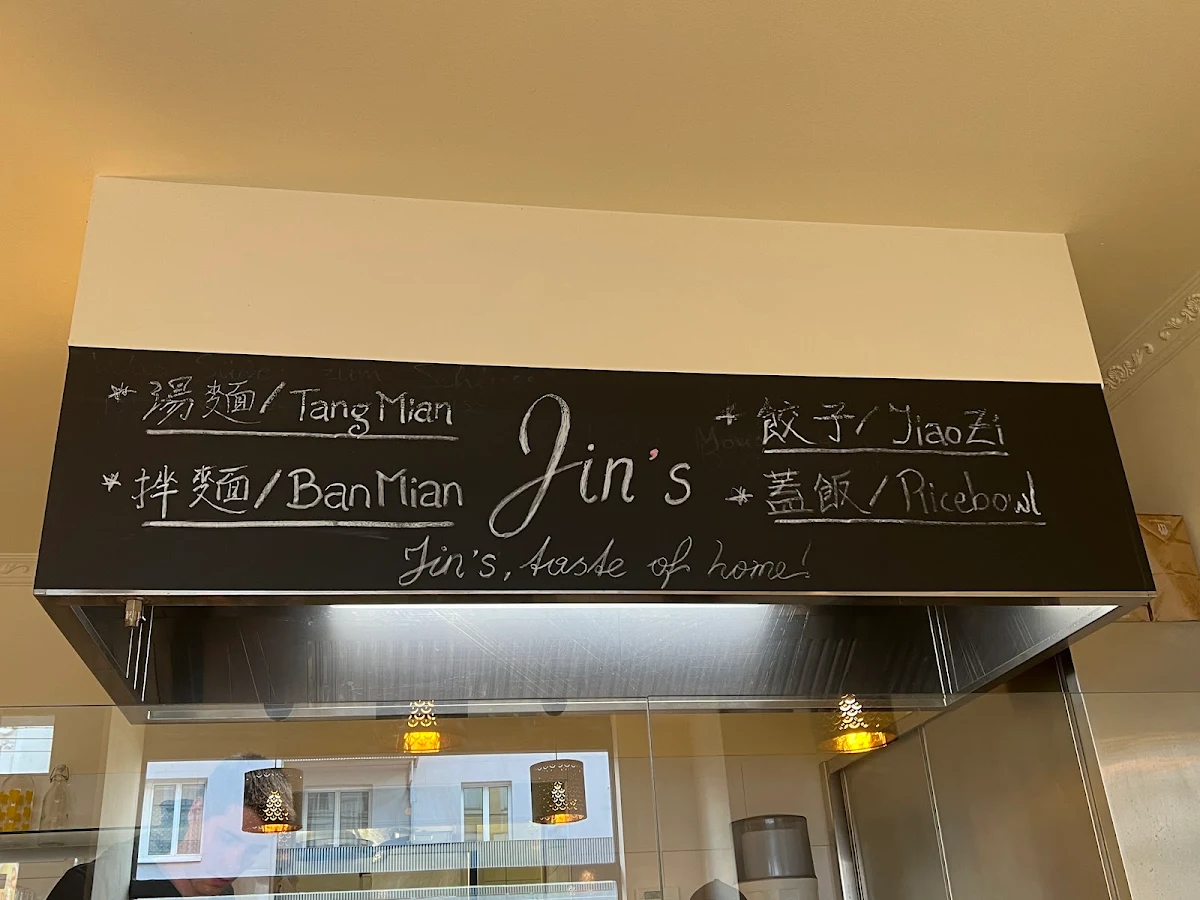 * 湯麵/Tang Mian
* 拌麵/Ban Mian
Jin's
* 餃子/JiaoZi
* 蓋飯/Ricebowl
Jin's, taste of home!